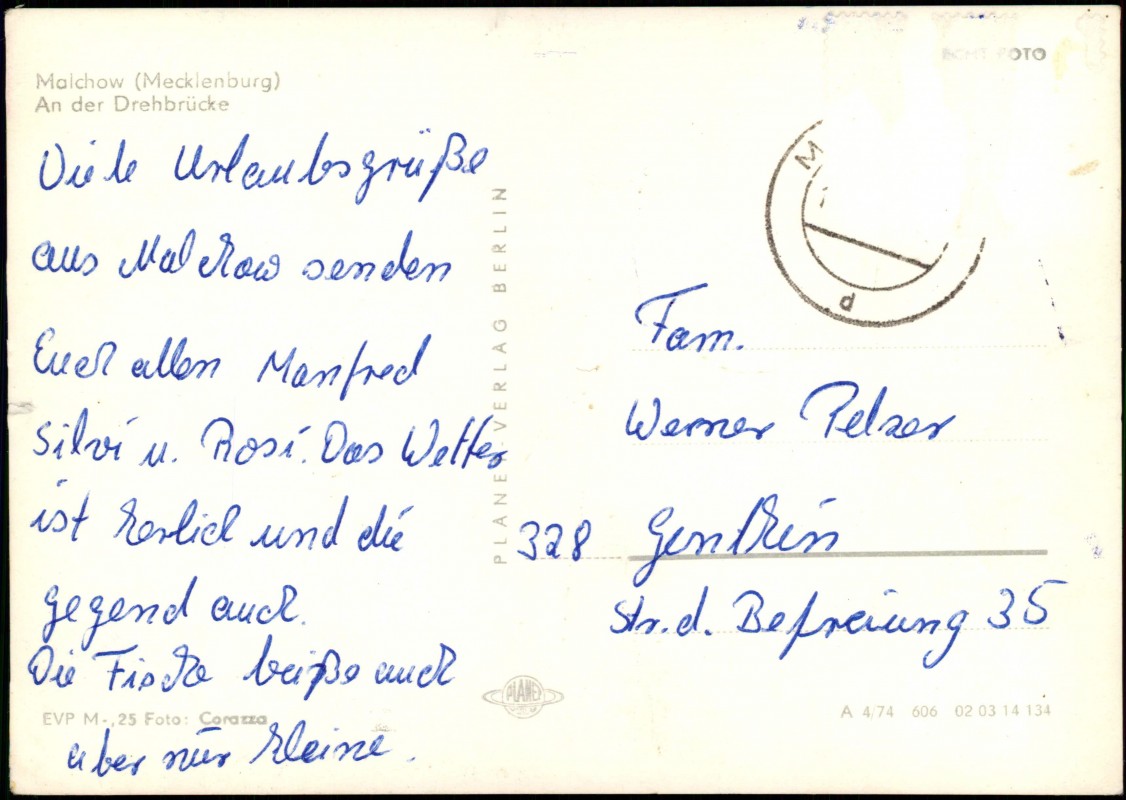 Malchow (Mecklenburg)
An der Drehbrücke
Viele Urlaubsgrüße
aus Malchow senden
Euch allen Manfred
Silvi u. Rosi. Das Wetter
ist herlich und die
gegend auch.
Die Fische beiße auch
aber nur kleine.
EVP M-,25 Foto: Corazza
PLANET-VERLAG BERLIN
PLANET
ECHT FOTO
M
d
Fam.
Werner Pelzer
328 Genthin
Str. d. Befreiung 35
A 4/74 606 02 03 14 134